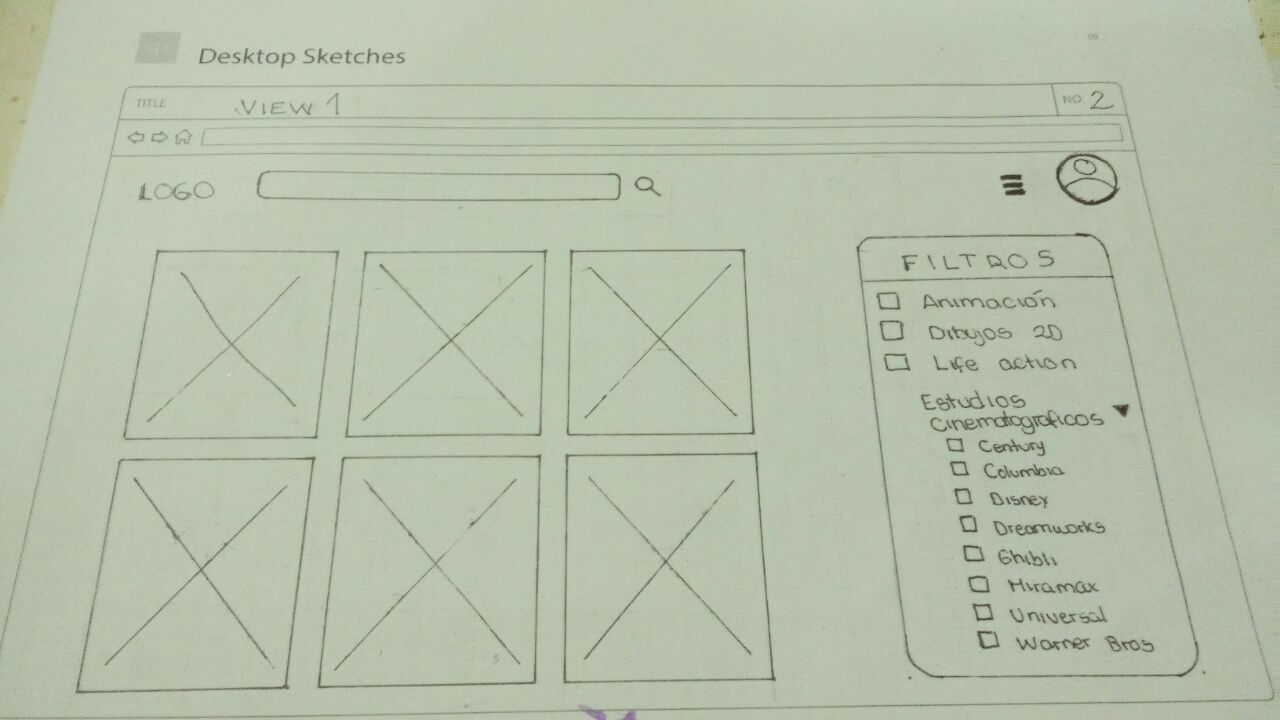 Desktop Sketches
TITLE VIEW 1 NO. 2
LOGO
FILTROS
Animación
Dibujos 2D
Life action
Estudios
Cinematograficos
Century
Columbia
Disney
Dreamworks
Ghibli
Miramax
Universal
Warner Bros